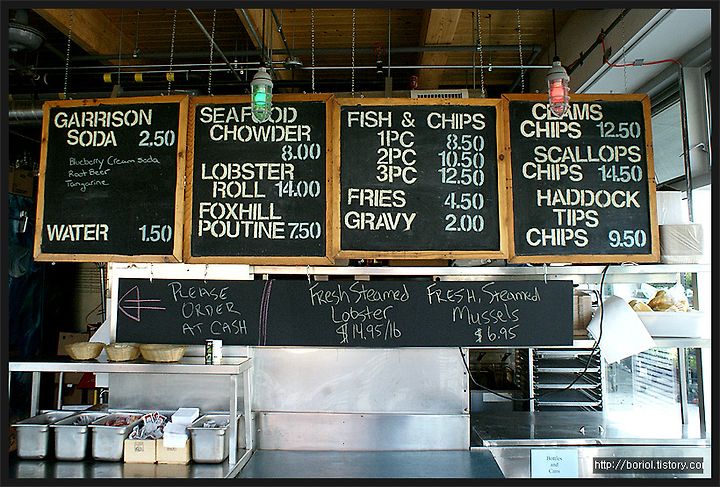 GARRISON
SODA 2.50
Blueberry Cream Soda
Root Beer
Tangarine
WATER 1.50
SEAFOOD
CHOWDER
8.00
LOBSTER
ROLL 14.00
FOXHILL
POUTINE 7.50
FISH & CHIPS
1PC 8.50
2PC 10.50
3PC 12.50
FRIES 4.50
GRAVY 2.00
CLAMS
CHIPS 12.50
SCALLOPS
CHIPS 14.50
HADDOCK
TIPS
CHIPS 9.50
PLEASE
ORDER
AT CASH
Fresh Steamed
Lobster
$14.95/lb
FRESH, Steamed
Mussels
$6.95
Bottles
and
Cans
http://boriol.tistory.com